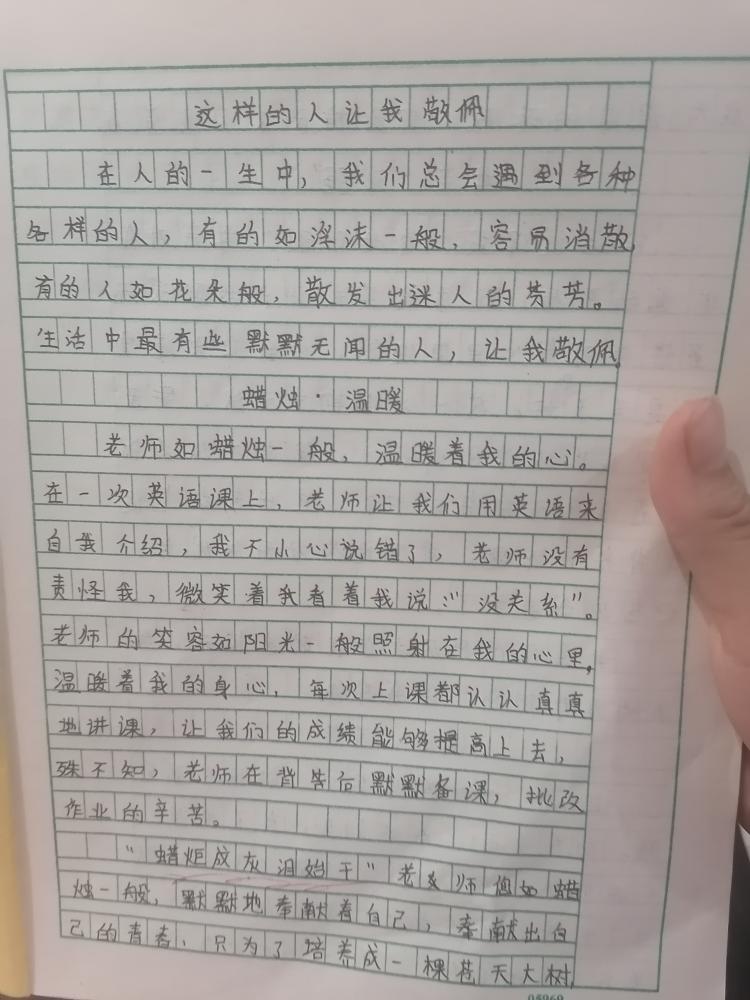 这样的人让我敬佩
在人的一生中，我们总会遇到各种
各样的人，有的如浮沫一般，容易消散，
有的人如花朵般，散发出迷人的芳芳。
生活中最有些默默无闻的人，让我敬佩。
蜡烛·温暖
老师如蜡烛一般，温暖着我的心。
在一次英语课上，老师让我们用英语来
自我介绍，我不小心说错了，老师没有
责怪我，微笑着我看着我说：“没关系”。
老师的笑容如阳光一般照射在我的心里，
温暖着我的身心，每次上课都认认真真
地讲课，让我们的成绩能够提高上去，
殊不知，老师在背后默默备课，批改
作业的辛苦。
“蜡炬成灰泪始干”老师您如蜡
烛一般，默默地奉献着自己，奉献出自
己的青春，只为了培养成一棵苍天大树，